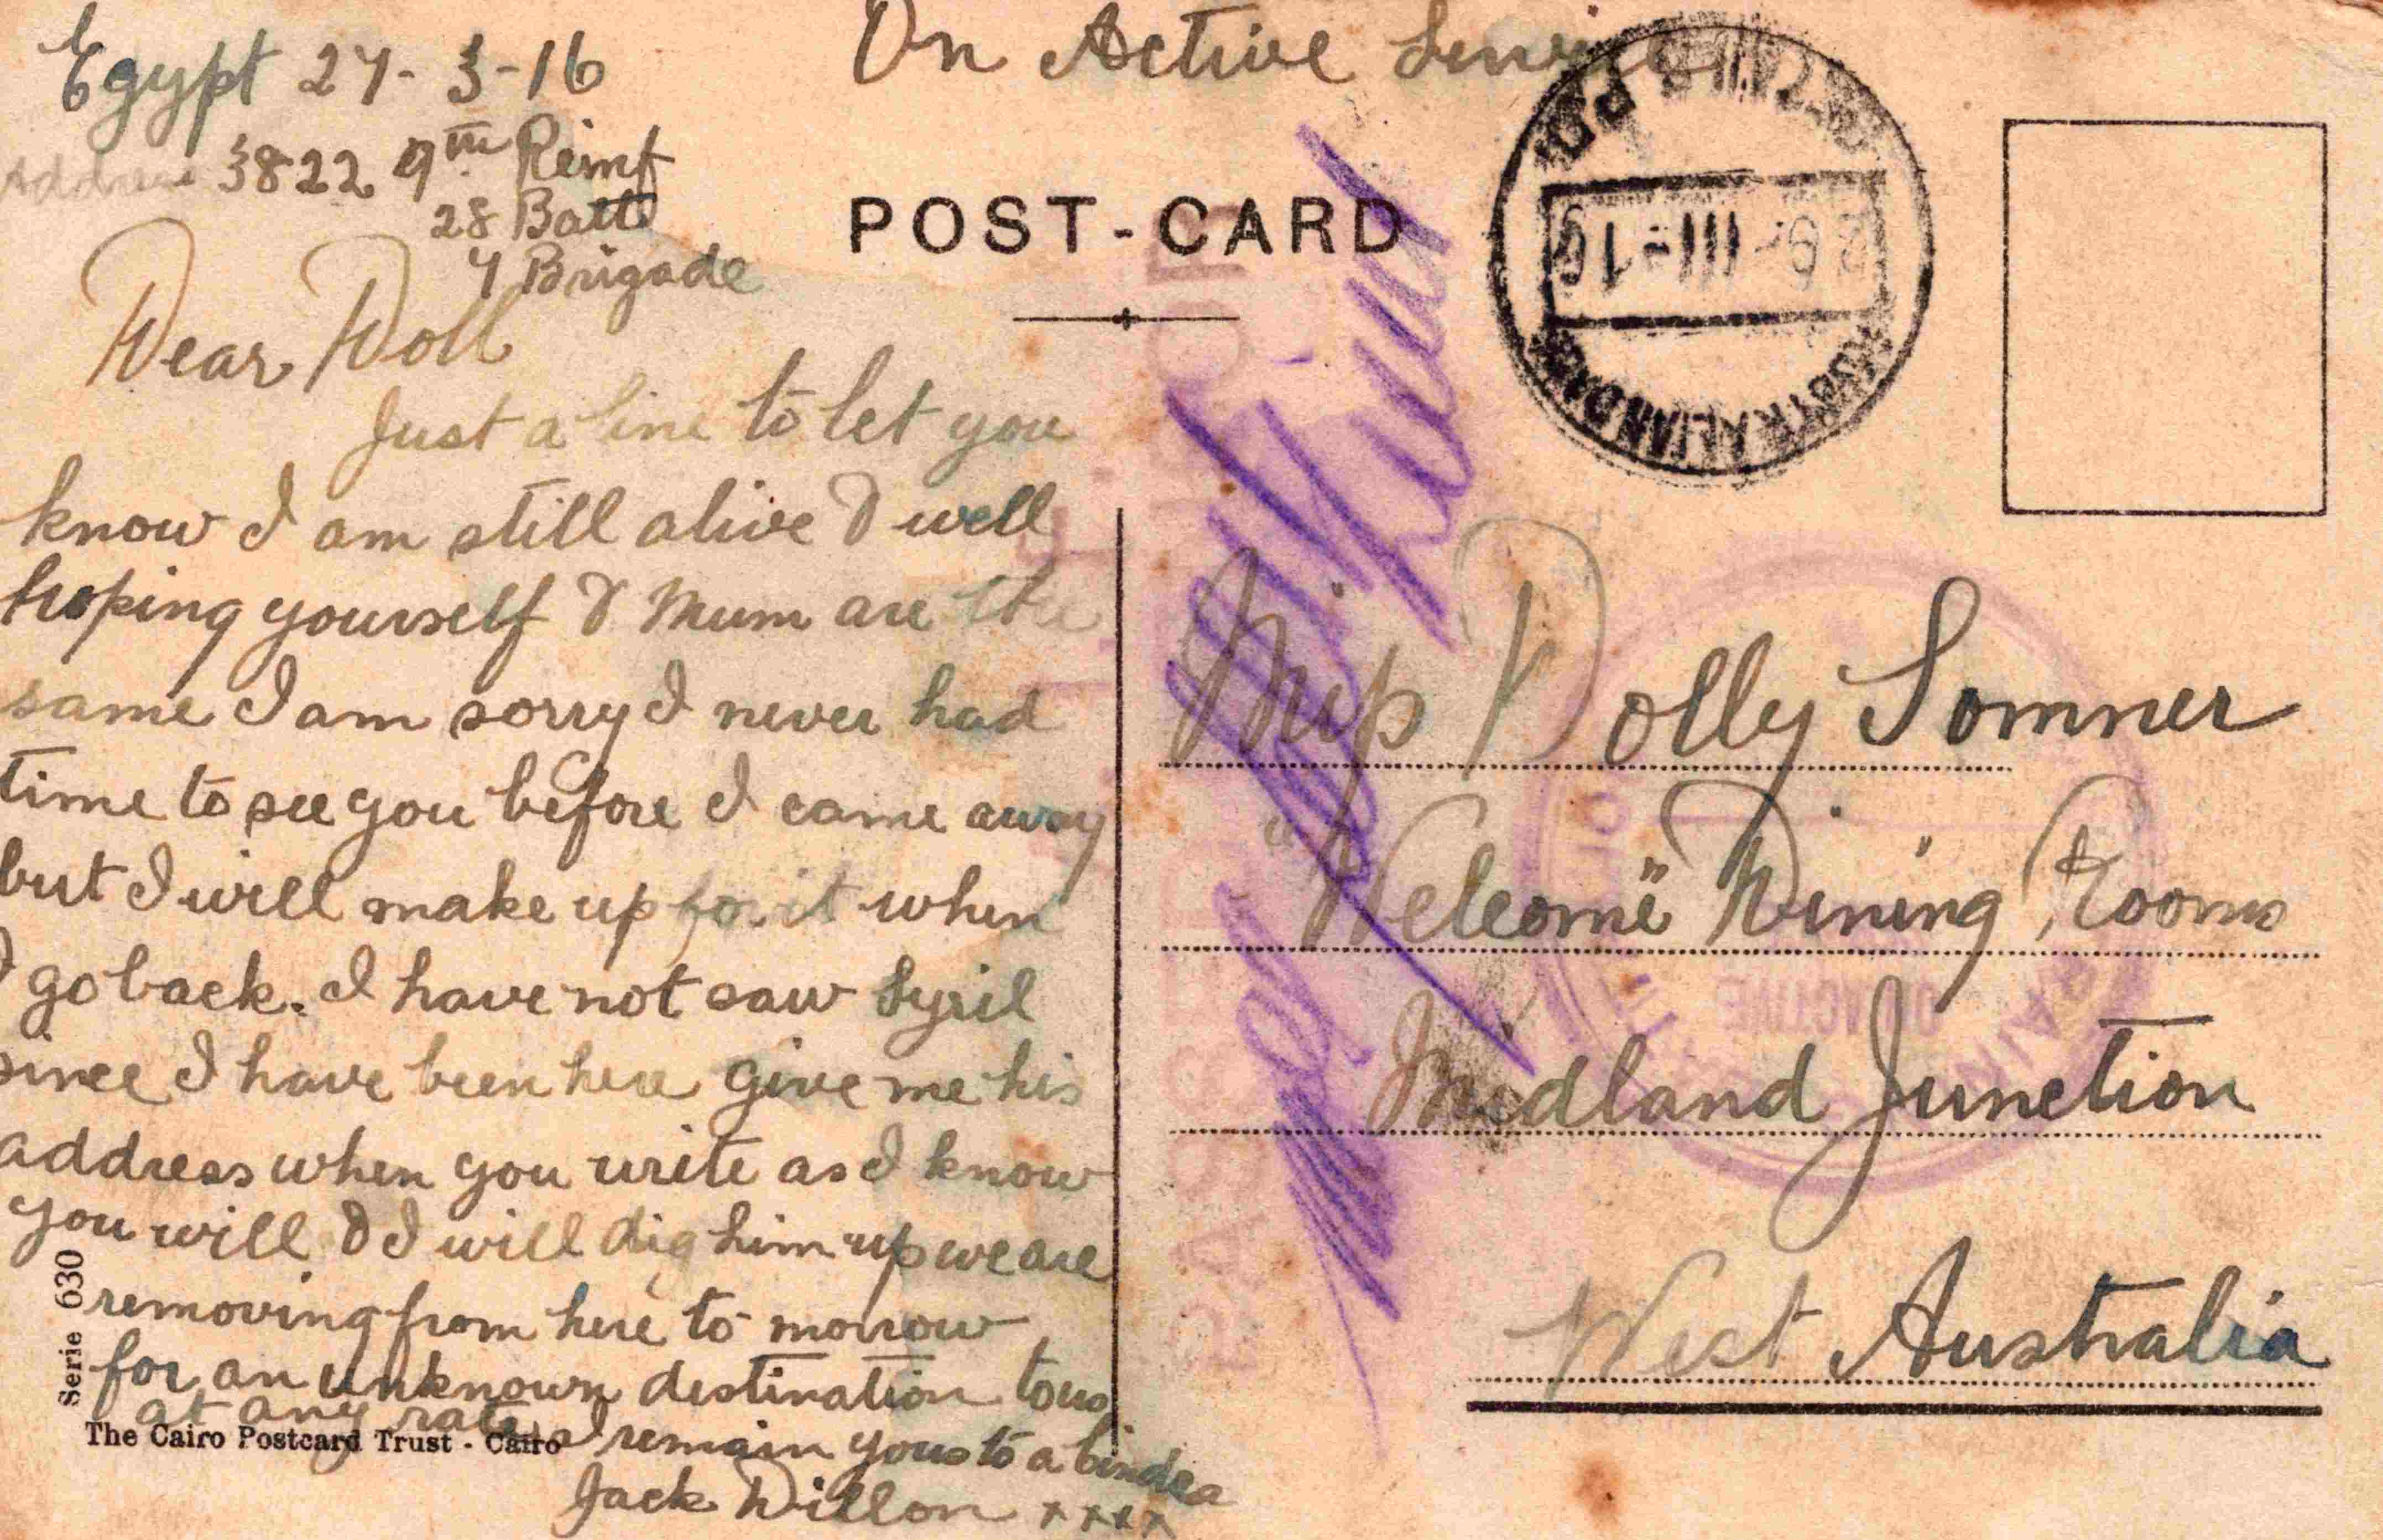 On Active Service
Egypt 27-3-16
Address 3822 9th Reinf
28 Batt
7 Brigade
POST-CARD
Dear Doll
Just a line to let you
know I am still alive & well
hoping yourself & Mum are the
same I am sorry I never had
time to see you before I came away
but I will make up for it when
I go back. I have not saw Syril
since I have been here give me his
address when you write as I know
you will & I will dig him up we are
removing from here to morrow
for an unknown destination to us
at any rate I remain yours to a
Jack Dillon xxxx
Serie 630
The Cairo Postcard Trust - Cairo
AUSTRALIAN
III-16
Miss Dolly Somner
"Welcome" Dining Rooms
Midland Junction
West Australia